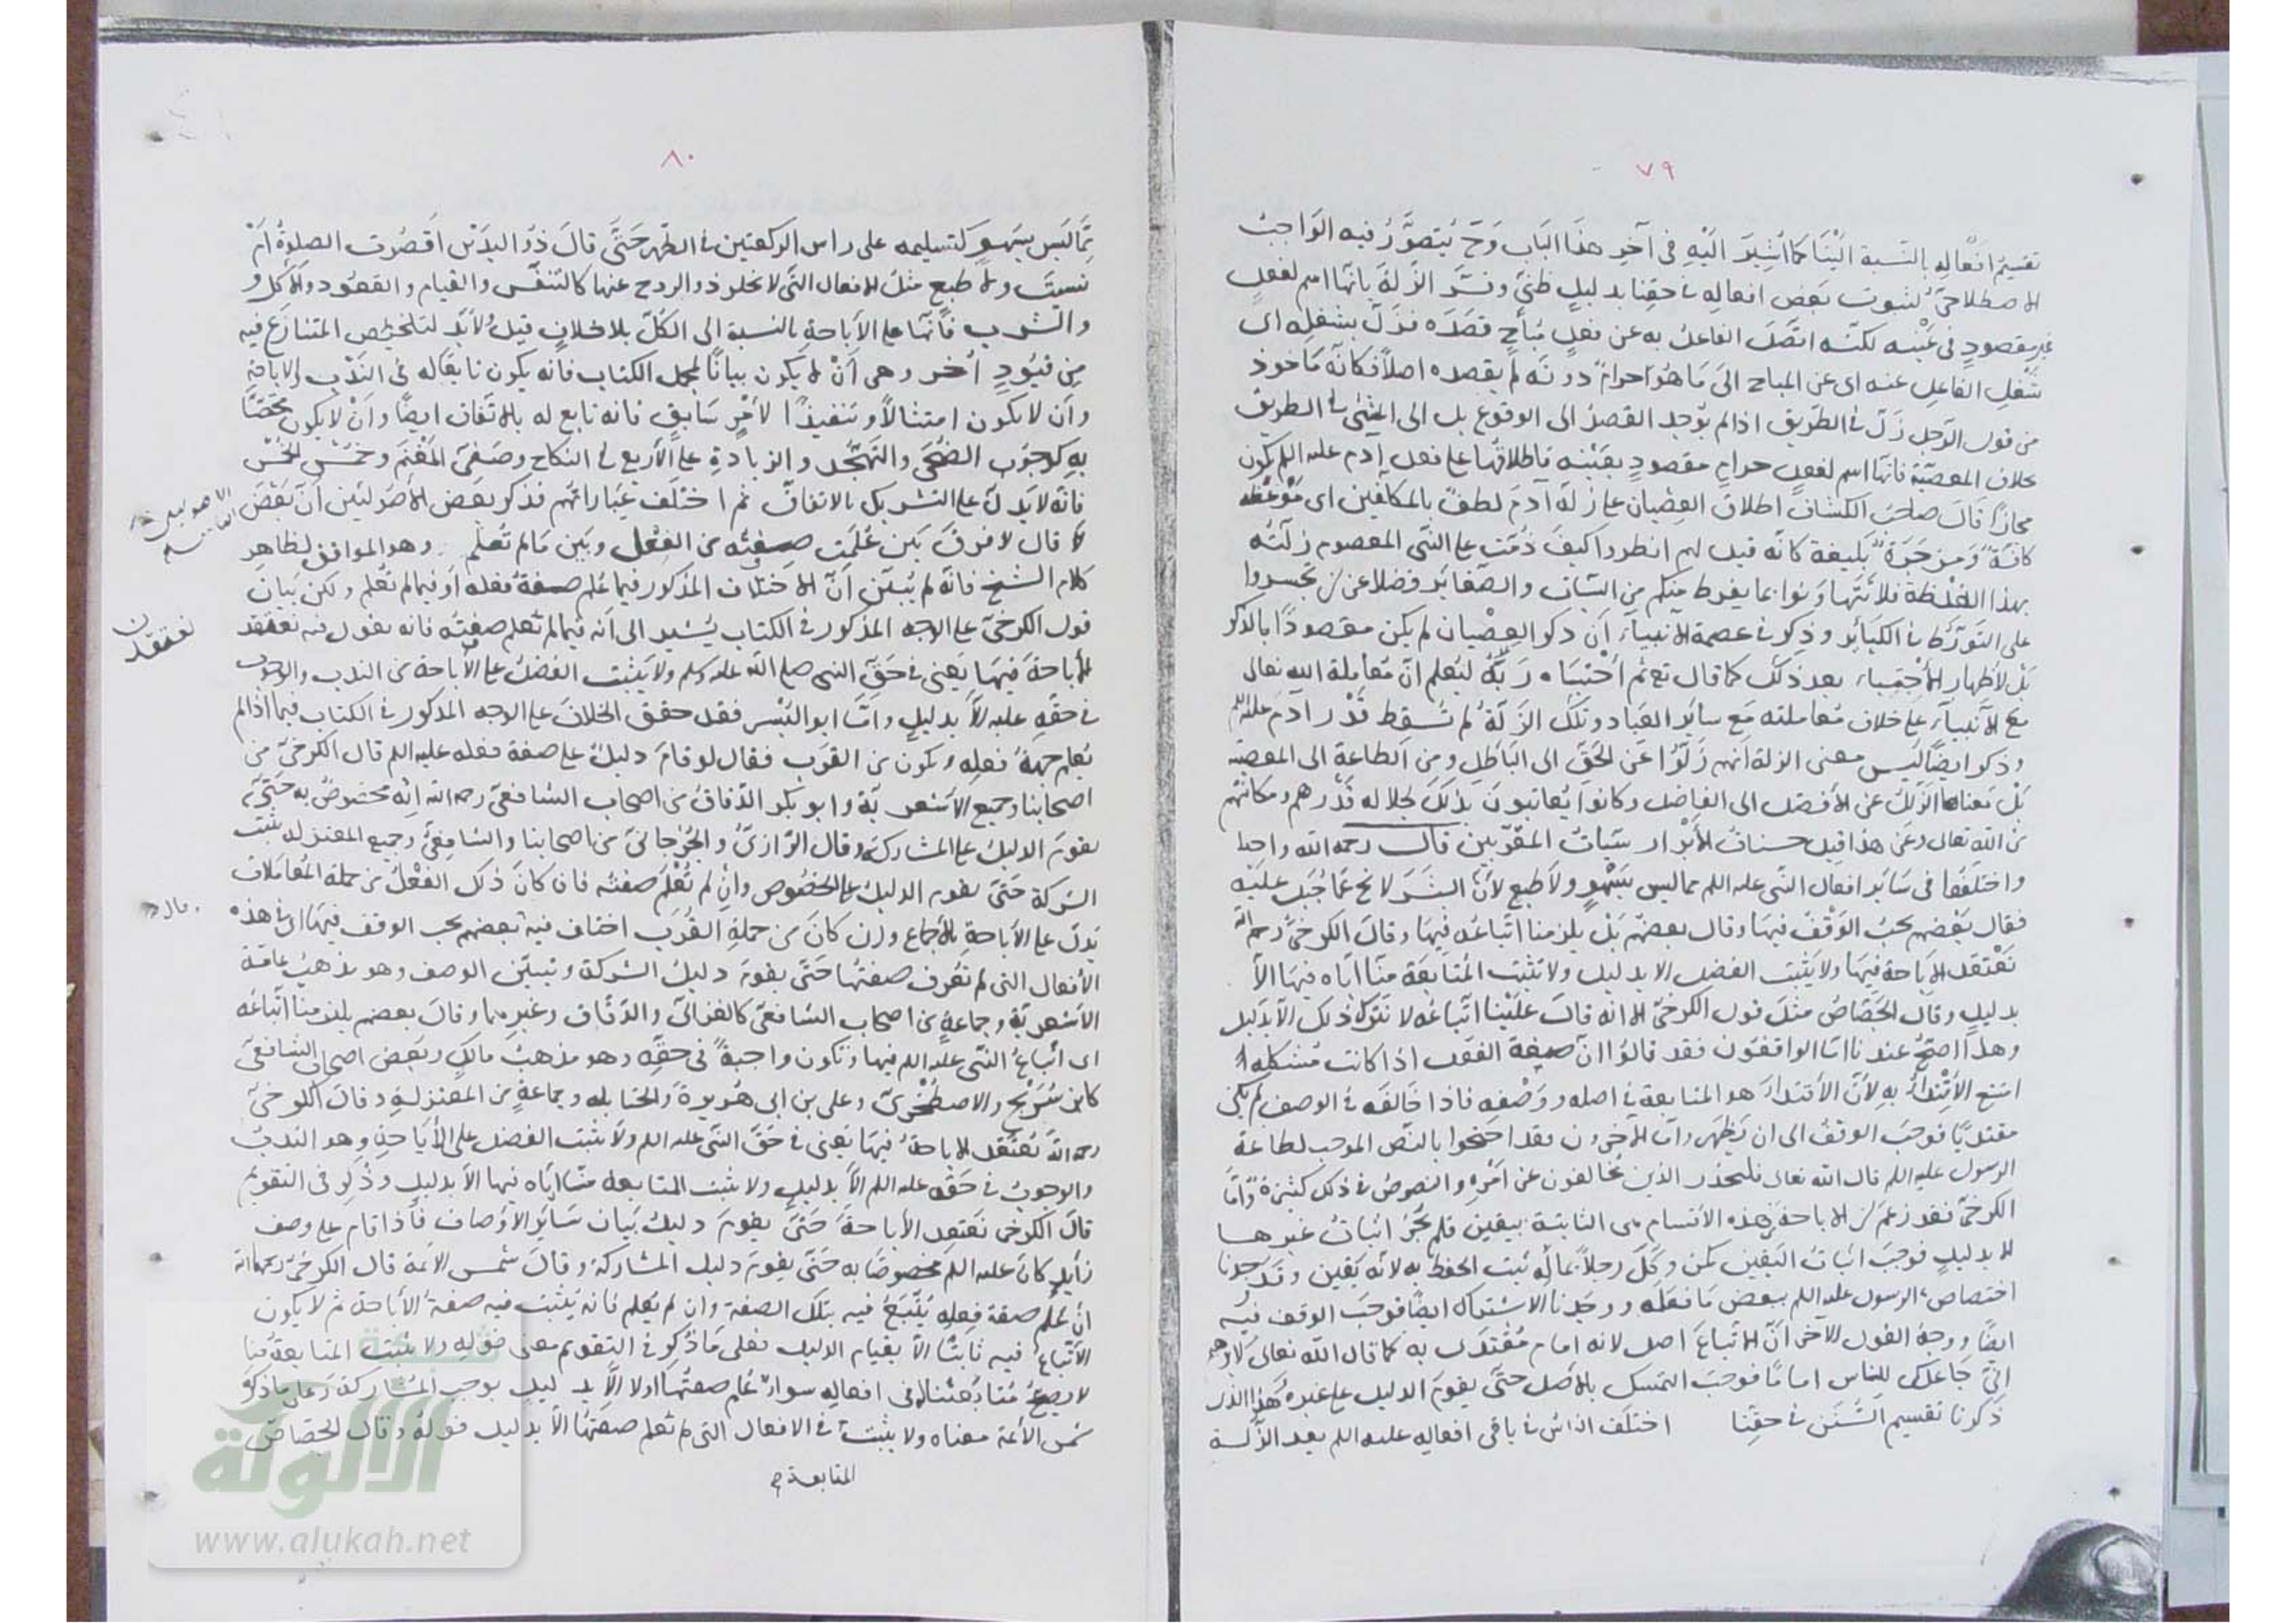 ٧٩
تقسيم افعاله بالنسبة الينا كما اشير اليه فى آخر هذا الباب وح يتصور فيه الواجب
الاصطلاحى لثبوت بعض افعاله فى حقنا بدليل ظنى وفسر الزلة بانها اسم لفعل
غير مقصود فى عينه لكنه اتصل الفاعل به عن فعل مباح قصده فزل بشغله اى
شغل الفاعل عنه اى عن المباح الى ما هو حرام دونه لم يقصده اصلا فكانه ماخوذ
من قول الرجل زل فى الطريق اذا لم يوجد القصد الى الوقوع بل الى المشى فى الطريق
بخلاف المعصية فانها اسم لفعل حرام مقصود بعينه فاطلاقها على فعل آدم عليه اللم يكون
مجازا قال صاحب الكشاف اطلاق العصيان على زلة آدم لطف بالمكلفين اى موعظة
كافة ومزجرة بليغة كانه قيل لهم انظروا كيف نعت على النبى المعصوم زلته
بهذا الغلظة فلا تتهاونوا بما يفرط منكم من السيئات والصغائر فضلا عن ان تجسروا
على التورط فى الكبائر وذكر فى عصمة الانبياء ان ذكر العصيان لم يكن مقصودا بالذكر
بل لاظهار الاجتباء بعد ذلك كما قال تع ثم اجتباه ربه ليعلم ان معاملة الله تعالى
مع الانبياء على خلاف معاملته مع سائر العباد وتلك الزلة لم تسقط قدر آدم عليه اللم
وذكر ايضا ليس معنى الزلة انهم زلوا عن الحق الى الباطل ومن الطاعة الى المعصية
بل معناها الزلل عن الافضل الى الفاضل وكانوا يعاتبون بذلك لجلاله قدرهم ومكانتهم
من الله تعالى وعن هذا قيل حسنات الابرار سيئات المقربين قال رحمه الله واحد
واختلفوا فى سائر افعال النبى عليه اللم مما ليس بسهو ولا طبع لان البشر لا يخ عما جبل عليه
فقال بعضهم يجب الوقف فيها وقال بعضهم بل يلزمنا اتباعه فيها وقال الكرخى رحمه الله
نعتقد الاباحة فيها ولا يثبت الفضل الا بدليل ولا تثبت المتابعة منا اياه فيها الا
بدليل وقال الجصاص مثل قول الكرخى الا انه قال علينا اتباعه لا نترك ذلك الا بدليل
وهذا اصح عندنا اما الواقفون فقد قالوا ان صيغة الفعل اذا كانت مشكله
امتنع الاقتداء به لان الاقتداء هو المتابعة فى اصله ووصفه فاذا خالفه فى الوصف لم يكن
مقتديا فوجب الوقف الى ان يظهر واما الآخرون فقد احتجوا بالنص الموجب لطاعة
الرسول عليه اللم قال الله تعالى فليحذر الذين يخالفون عن امره والنصوص فى ذلك كثيرة واما
الكرخى فقد زعم ان الاباحة من هذه الاقسام هى الثابتة بيقين فلم يجز اثبات غيرها
الا بدليل فوجب اثبات اليقين كمن وكل رجلا بماله ثبت الحفظ به لانه يقين وقد وجدنا
اختصاص الرسول عليه اللم ببعض ما فعله ووجدنا الاشتراك ايضا فوجب الوقف فيه
ايضا ووجه القول الآخر ان الاتباع اصل لانه امام مقتدى به كما قال الله تعالى لابرهيم
انى جاعلك للناس اماما فوجب التمسك بالاصل حتى يقوم الدليل على غيره هذا الذى
ذكرنا تقسيم السنن فى حقنا اختلف الناس فى باقى افعاله عليه اللم بعد الزلة
٨٠
مما ليس بسهو كتسليمه على راس الركعتين فى الظهر حتى قال ذو اليدين اقصرت الصلوة ام
نسيت ولا طبع مثل الافعال التى لا يخلو ذو الروح عنها كالتنفس والقيام والقعود والاكل و
والشرب فانها على الاباحة بالنسبة الى الكل بلا خلاف قيل ولابد لتلخيص المتنازع فيه
من قيود اخر وهى ان لا يكون بيانا لمجمل الكتاب فانه يكون تابعا له فى الندب والاباحة
وان لا يكون امتثالا وتنفيذا لامر سابق فانه تابع له بالاتفاق ايضا وان لا يكون مختصا
به كوجوب الضحى والتهجد والزيادة على الاربع فى النكاح وصفى المغنم وخمس الخمس
فانه لا يدل على التشريك بالاتفاق ثم اختلف عباراتهم فذكر بعض الاصوليين ان بعض
قال لا فرق بين علمت صفته من الفعل وبين ما لم تعلم وهو الموافق لظاهر
كلام الشيخ فانه لم يبين ان الاختلاف المذكور فيما علم صفة فعله او فيما لم تعلم ولكن بيان
قول الكرخى على الوجه المذكور فى الكتاب يشير الى انه فيما لم تعلم صفته فانه يقول فيه نعتقد
الاباحة فيها يعنى فى حق النبى صلى الله عليه وسلم ولا يثبت الفضل على الاباحة من الندب والوجوب
فى حقه عليه الا بدليل واما ابو اليسر فقد حقق الخلاف على الوجه المذكور فى الكتاب فيما اذا لم
يعلم جهة فعله ويكون من القرب فقال لو قام دليل على صفة فعله عليه اللم قال الكرخى من
اصحابنا وجميع الاشعرية وابو بكر الدقاق من اصحاب الشافعى رحمه الله انه مخصوص به حتى
يقوم الدليل على المشاركة وقال الرازى والجرجانى من اصحابنا والشافعى وجميع المعتزله يثبت
الشركة حتى يقوم الدليل على الخصوص وان لم تعلم صفته فان كان ذلك الفعل من جملة المعاملات
يدل على الاباحة بالاجماع وان كان من جملة القرب اختلف فيه بعضهم يجب الوقف فيها اى فى هذه
الافعال التى لم تعرف صفتها حتى يقوم دليل الشركة وتبين الوصف وهو مذهب عامة
الاشعرية وجماعة من اصحاب الشافعى كالغزالى والدقاق وغيرهما وقال بعضهم يلزمنا اتباعه
اى اتباع النبى عليه اللم فيها وتكون واجبة فى حقه وهو مذهب مالك وبعض اصحاب الشافعى
كابن سريج والاصطخرى وعلى بن ابى هريرة والحنابله وجماعة من المعتزلة وقال الكرخى
رحمه الله نعتقد الاباحة فيها يعنى فى حق النبى عليه اللم ولا يثبت الفضل على الاباحة وهو الندب
والوجوب فى حقه عليه اللم الا بدليل ولا يثبت المتابعة منا اياه فيها الا بدليل وذكر فى التقويم
قال الكرخى نعتقد الاباحة حتى يقوم دليل بيان سائر الاوصاف فاذا قام على وصف
زايد كان عليه اللم مخصوصا به حتى يقوم دليل المشاركة وقال شمس الائمة قال الكرخى رحمهما الله
ان علم صفة فعله يتبع فيه بتلك الصفة وان لم يعلم فانه يثبت فيه صفة الاباحة ثم لا يكون
الاتباع فيه ثابتا الا بقيام الدليل فعلى ما ذكر فى التقويم معنى قوله ولا يثبت المتابعة منا
لا يصح متابعتنا له فى افعاله سواء علم صفتها اولا الا بدليل يوجب المشاركة وعلى ما ذكره
شمس الائمة معناه ولا يثبت فى الافعال التى لم تعلم صفتها الا بدليل قوله وقال الجصاص
المتابعة م
نعتقد ن
شبكة
الألوكة
www.alukah.net